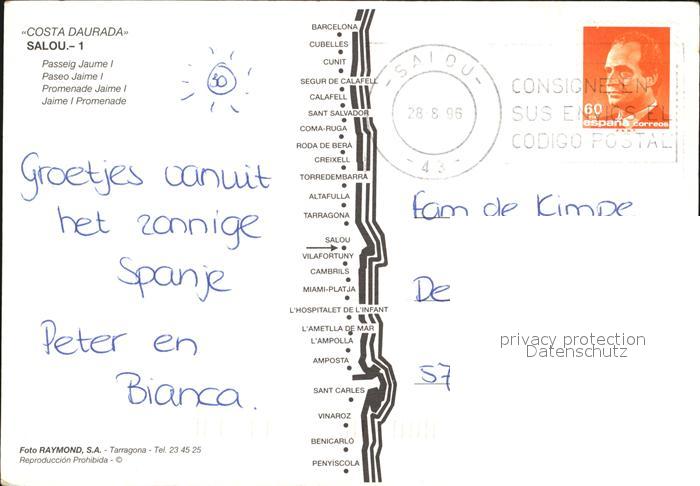 «COSTA DAURADA»
SALOU.- 1
Passeig Jaume I
Paseo Jaime I
Promenade Jaime I
Jaime I Promenade
30
Groetjes vanuit
het zonnige
Spanje
Peter en
Bianca.
Foto RAYMOND, S.A. - Tarragona - Tel. 23 45 25
Reproducción Prohibida - ©
BARCELONA
CUBELLES
CUNIT
SEGUR DE CALAFELL
CALAFELL
SANT SALVADOR
COMA-RUGA
RODA DE BERA
CREIXELL
TORREDEMBARRA
ALTAFULLA
TARRAGONA
SALOU
VILAFORTUNY
CAMBRILS
MIAMI-PLATJA
L'HOSPITALET DE L'INFANT
L'AMETLLA DE MAR
L'AMPOLLA
AMPOSTA
SANT CARLES
VINAROZ
BENICARLÓ
PENYÍSCOLA
-SALOU-
28-8-96
-43-
CONSIGNE EN
SUS ENVIOS EL
CODIGO POSTAL
60
españa correos
Fam de Kimpe
De
57
privacy protection
Datenschutz